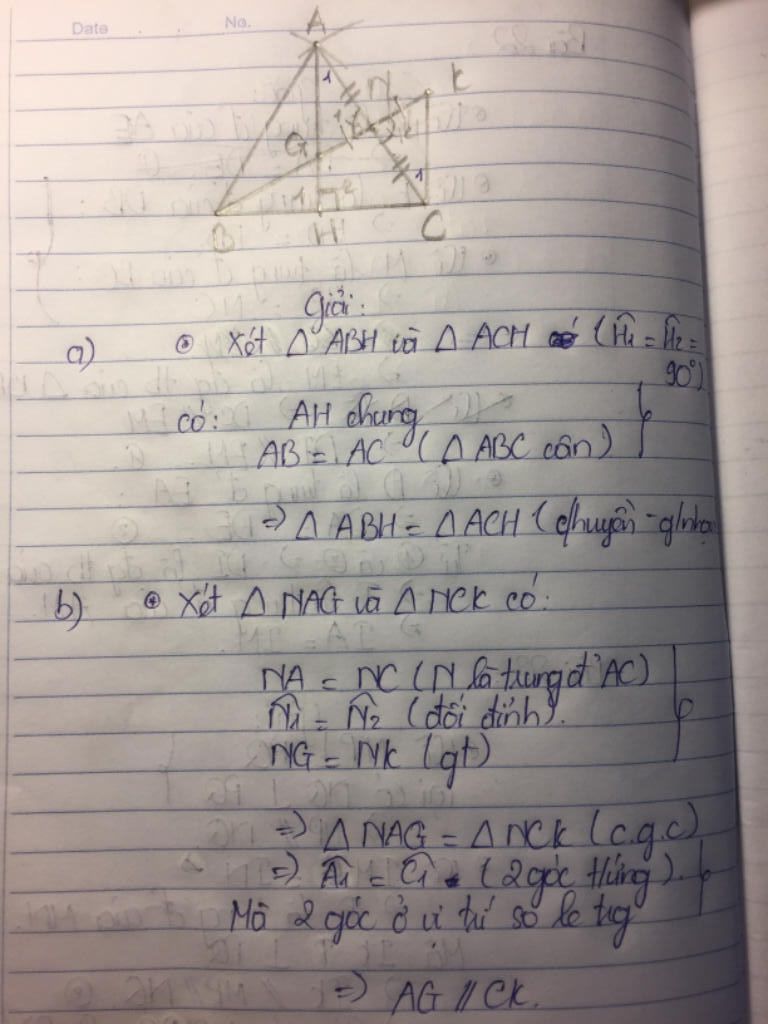 Date . . No.
A
1
N
K
1 2
G
1
1 2
B H C
Giải:
a) Xét Δ ABH và Δ ACH (Ĥ1 = Ĥ2 = 90°)
có: AH chung
AB = AC (Δ ABC cân)
=> Δ ABH = Δ ACH (c/huyền - g/nhọn
b) Xét Δ NAG và Δ NCK có:
NA = NC (N là trung đ' AC)
N̂1 = N̂2 (đối đỉnh).
NG = NK (gt)
=> Δ NAG = Δ NCK (c.g.c)
=> Â1 = Ĉ1 (2 góc tứng).
Mà 2 góc ở vị trí so le trg
=> AG // CK.